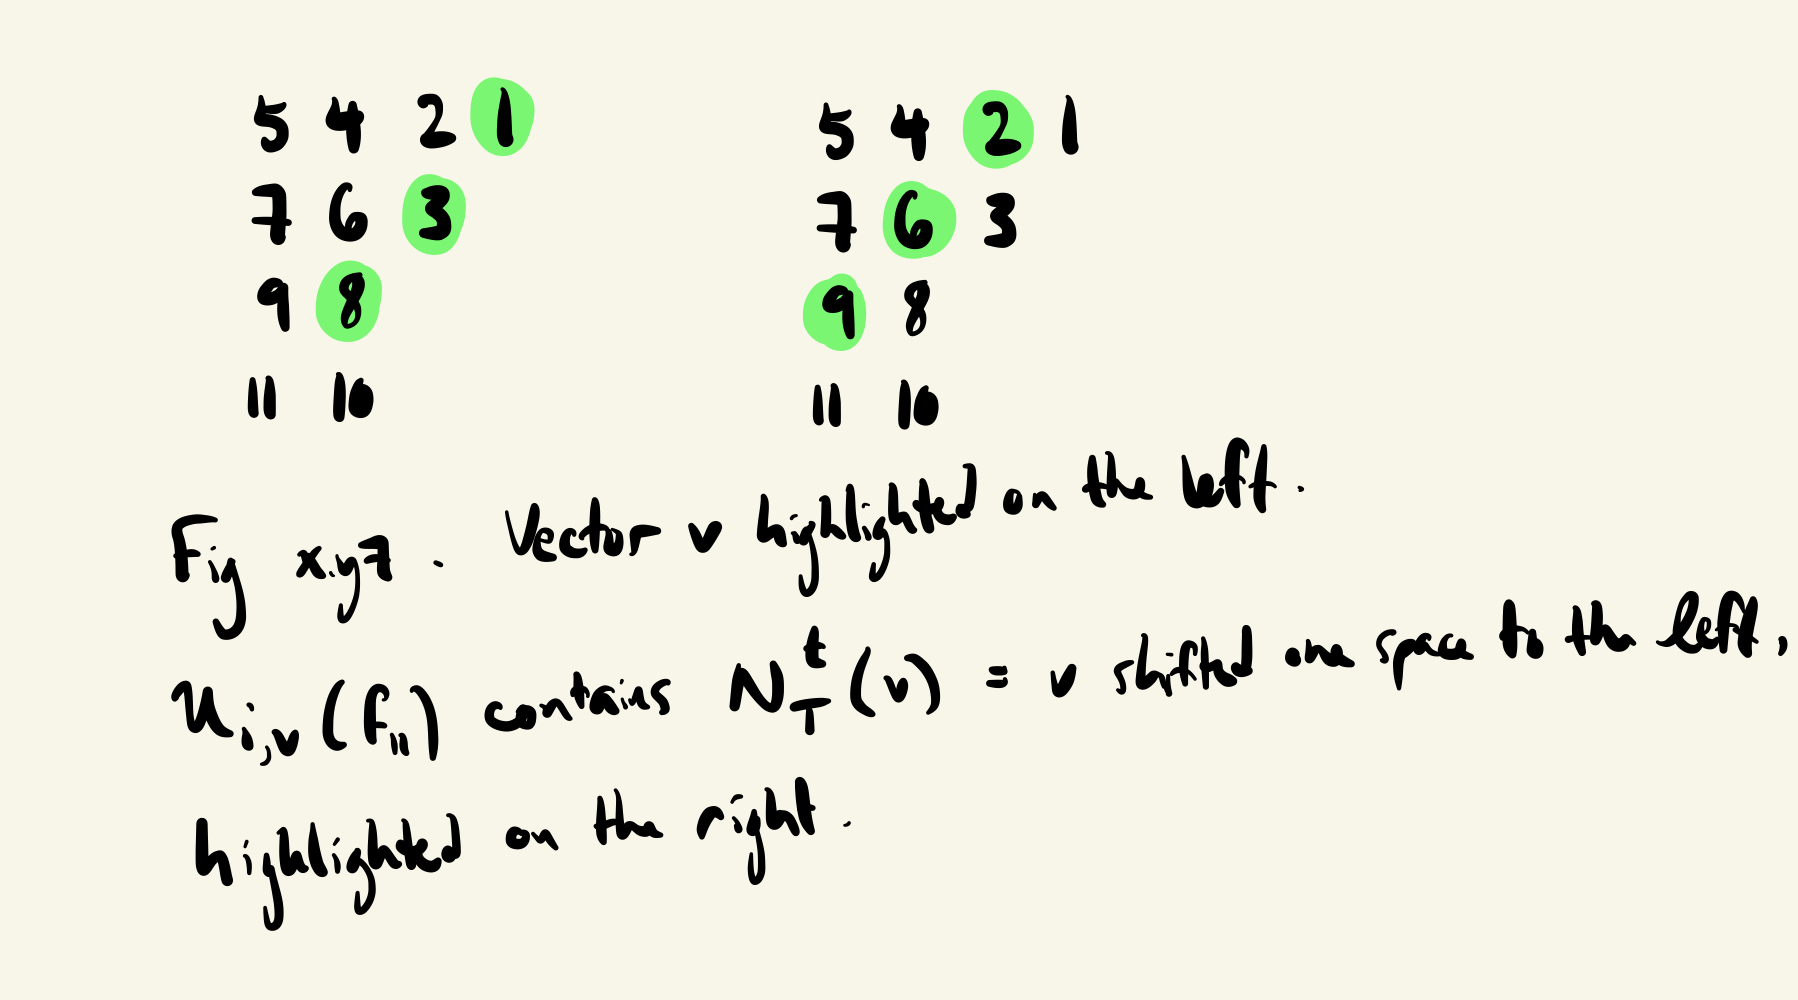 5 4 2 1 5 4 2 1
7 6 3 7 6 3
9 8 9 8
11 10 11 10
Fig x.y7. Vector v highlighted on the left.
U_{i,v}(f_{11}) contains N_T^t(v) = v shifted one space to the left,
highlighted on the right.